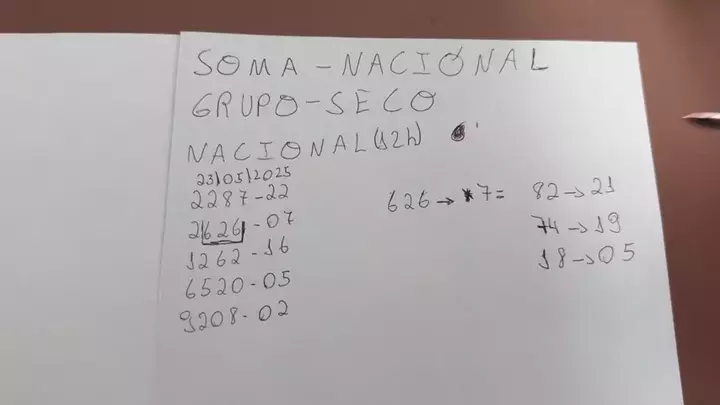 SOMA-NACIONAL
GRUPO-SECO
NACIONAL(12h)
23/05/2025
2287-22
2626-07
1262-16
6520-05
9208-02
626→*7= 82→21
74→19
18→05